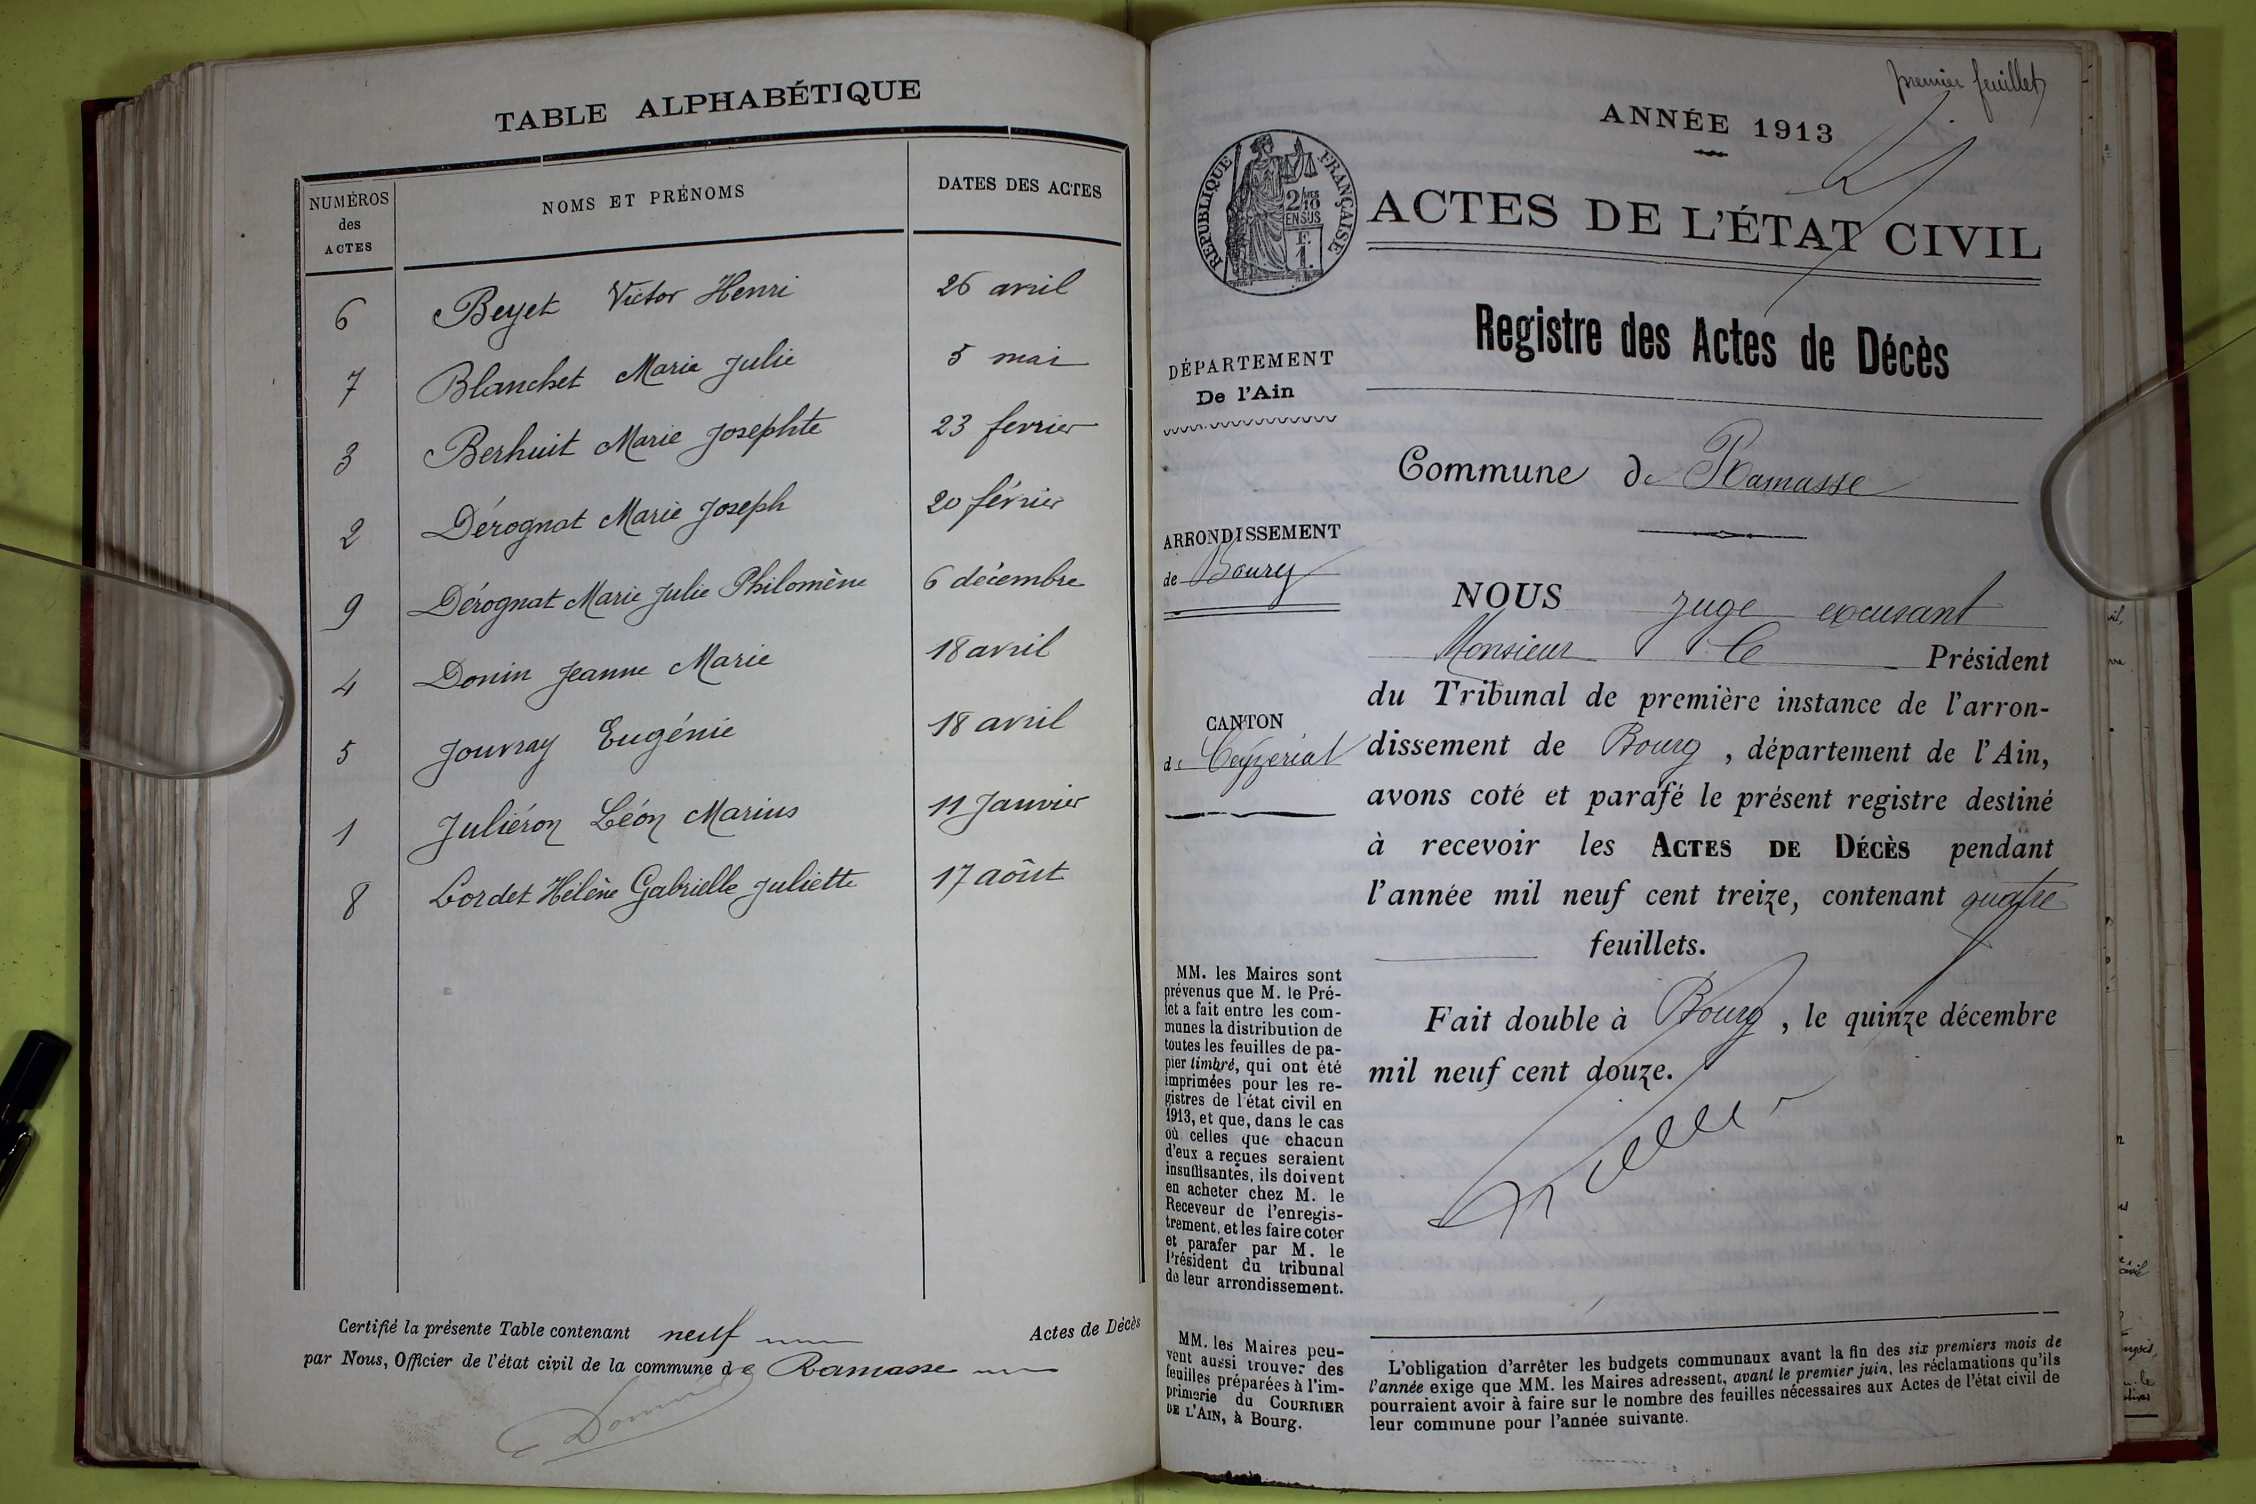 TABLE ALPHABÉTIQUE
NUMÉROS des ACTES
NOMS ET PRÉNOMS
DATES DES ACTES
6 Beyet Victor Henri 26 avril
7 Blanchet Marie Julie 5 mai
3 Berhuit Marie Josephte 23 fevrier
2 Dérognat Marie Joseph 20 février
9 Dérognat Marie Julie Philomène 6 décembre
4 Donin Jeanne Marie 18 avril
5 Jouvray Eugénie 18 avril
1 Juliéron Léon Marius 11 Janvier
8 Lordet Hélène Gabrielle Juliette 17 aôut
Certifié la présente Table contenant neuf Actes de Décès
par Nous, Officier de l'état civil de la commune de Ramasse
premier feuillet
ANNÉE 1913
RÉPUBLIQUE FRANÇAISE
2/10 EN SUS
F. 1.
ACTES DE L'ÉTAT CIVIL
Registre des Actes de Décès
DÉPARTEMENT
De l'Ain
Commune de Ramasse
ARRONDISSEMENT
de Bourg
CANTON
de Ceyzeriat
NOUS juge excusant
Monsieur le Président
du Tribunal de première instance de l'arron-
dissement de Bourg, département de l'Ain,
avons coté et parafé le présent registre destiné
à recevoir les ACTES DE DÉCÈS pendant
l'année mil neuf cent treize, contenant quatre
feuillets.
Fait double à Bourg, le quinze décembre
mil neuf cent douze.
MM. les Maires sont
prévenus que M. le Pré-
fet a fait entre les com-
munes la distribution de
toutes les feuilles de pa-
pier timbré, qui ont été
imprimées pour les re-
gistres de l'état civil en
1913, et que, dans le cas
où celles que chacun
d'eux a reçues seraient
insuffisantes, ils doivent
en acheter chez M. le
Receveur de l'enregis-
trement, et les faire coter
et parafer par M. le
Président du tribunal
de leur arrondissement.
MM. les Maires peu-
vent aussi trouver des
feuilles préparées à l'im-
primerie du COURRIER
DE L'AIN, à Bourg.
L'obligation d'arrêter les budgets communaux avant la fin des six premiers mois de
l'année exige que MM. les Maires adressent, avant le premier juin, les réclamations qu'ils
pourraient avoir à faire sur le nombre des feuilles nécessaires aux Actes de l'état civil de
leur commune pour l'année suivante.